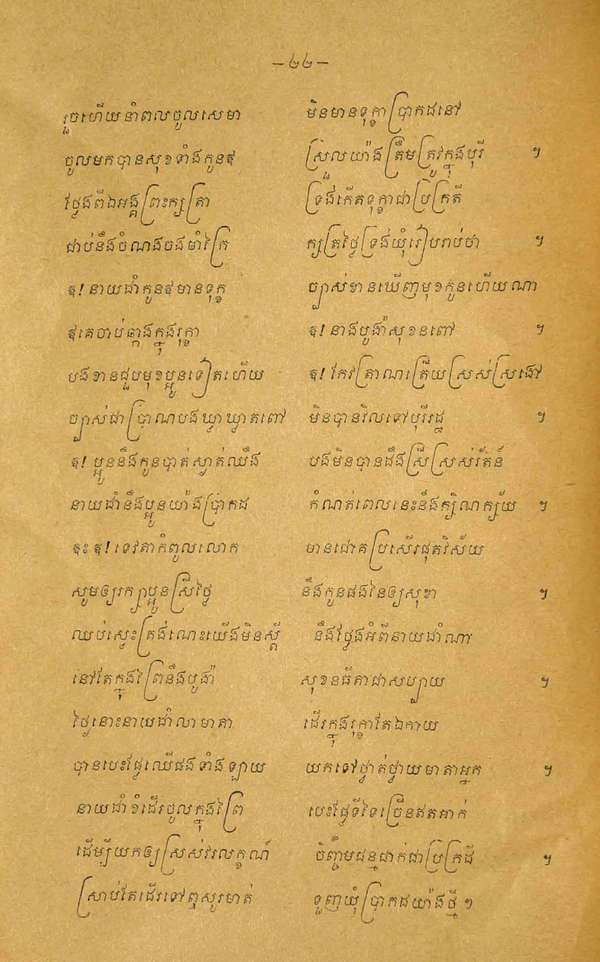 —៤៤—
រួចហើយនាំពលចូលសេមា មិនមានទុក្ខាប្រាកដនៅ
ចូលមកបានសុខទាំងកូនឥ ស្រួលយ៉ាងត្រឹមត្រូវក្នុងបុរី ។
ថ្លែងពីឯអង្គព្រះក្សត្រា ទ្រង់កើតទុក្ខាជាប្រក្រតី
ជាប់នឹងចំណងចងចាំព្រៃ ក្សត្រថ្លៃទ្រង់យុំរៀបរាប់ថា ។
ឱ! នាយជាំកូនឥមានទុក្ខ ច្បាស់ខានឃើញមុខកូនហើយណា
ឥគេចាប់ឆ្កាងក្នុងរុក្ខា ឱ! នាងបូង៉ាសុខនពៅ ។
បងខានជួបមុខប្អូនទៀតហើយ ឱ! កែវត្រាណត្រើយស្រស់ស្រងៅ
ច្បាស់ជាប្រាណបងឃ្លាឃ្លាតពៅ មិនបានវិលទៅបុរីរដ្ឋ ។
ឱ! ប្អូននឹងកូនបាត់ស្ងាត់ឈឹង បងមិនបានដឹងស្រីស្រស់រ័តន៍
នាយជាំនឹងប្អូនយ៉ាងប្រាកដ កំណត់ពេលនេះនឹងក្សិណក្ស័យ ។
ឱះ ឱ! ទេវតាកំពូលលោក មានជោគប្រសើរផុតវិស័យ
សូមឲ្យរក្សាប្អូនស្រីថ្លៃ នឹងកូនផងនៃឲ្យសុខា ។
ឈប់ស្ងេះត្រង់ណេះយើងមិនស្តី នឹងថ្លែងអំពីនាយជាំណា
នៅតែក្នុងព្រៃនឹងបូង៉ា សុខនធីតាជាសប្បាយ ។
ថ្ងៃនោះនាយជាំលាមាតា ដើរក្នុងរុក្ខាតែឯកាយ
បានបេះផ្លែឈើផងទាំងឡាយ យកទៅថ្វាត់ថ្វាយមាតាអ្នក ។
នាយជាំខំដើរចូលក្នុងព្រៃ បេះផ្លែទីទៃច្រើនឥតអាក់
ដើម្បីយកឲ្យស្រស់វរលក្ខណ៍ ចិញ្ចឹមជន្មជាក់ជាប្រក្រដី ។
ស្រាប់តែដើរទៅឮសូរមាត់ ទួញយុំប្រាកដយ៉ាងថ្មី ។